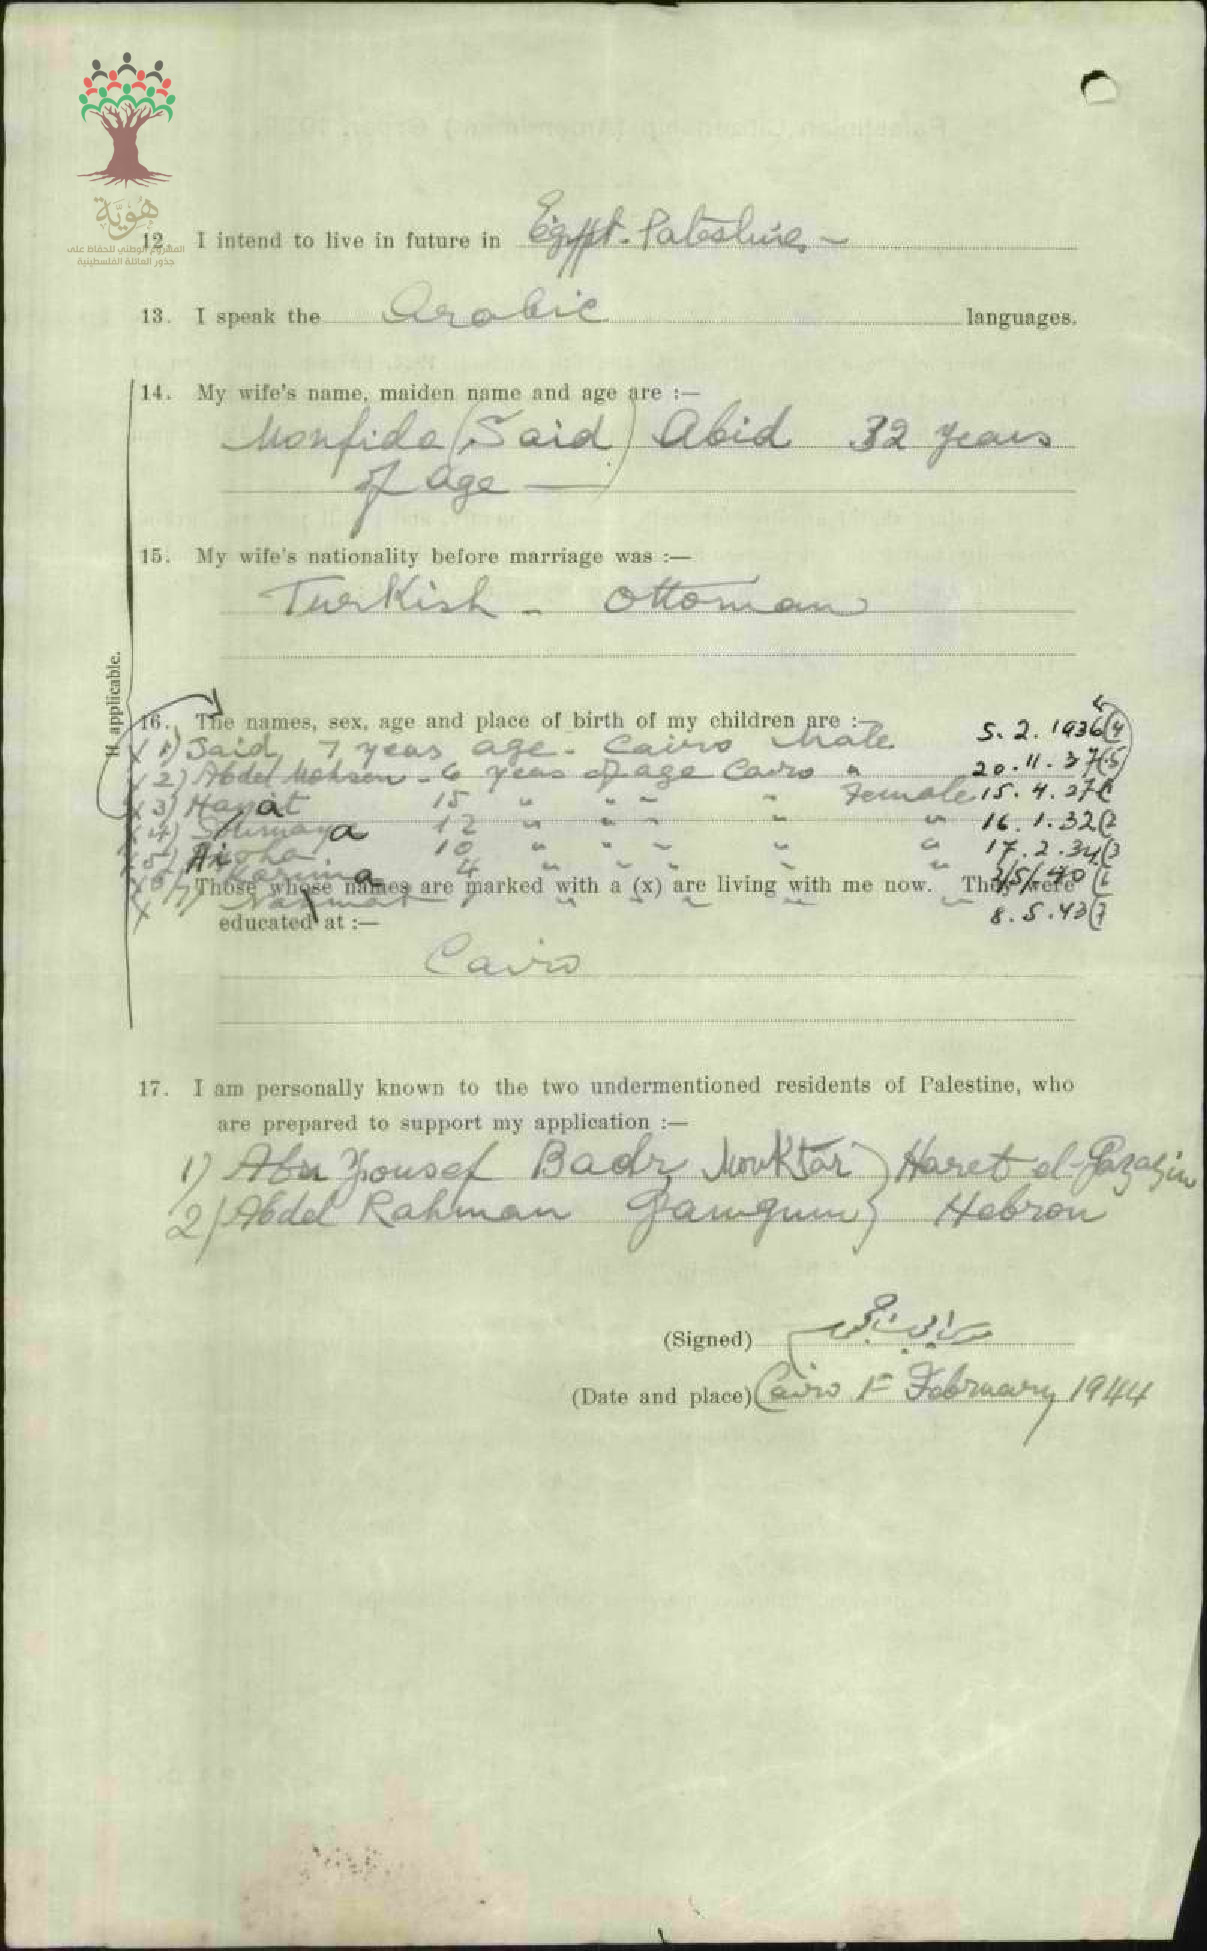 هُوِيَّة
المشروع الوطني للحفاظ على
جذور العائلة الفلسطينية
12. I intend to live in future in Egypt - Palestine -
13. I speak the Arabic languages.
If applicable.
14. My wife's name, maiden name and age are :—
Monfida (Said) Abid 32 years
of age —
15. My wife's nationality before marriage was :—
Turkish - Ottoman
16. The names, sex, age and place of birth of my children are :—
x 1) Said, 7 years age. Cairo Male 5.2.1936 (4
x 2) Abdel Mohsen - 6 years of age Cairo " 20.11.37 (5
x 3) Hayat 15 " " " " Female 15.4.27 (
x 4) 12 " " " " " 16.1.32 (2
x 5) Aisha 10 " " " " " 17.2.34 (3
x 6) Karima 4 " " " " " 3/5/40 (6
Those whose names are marked with a (x) are living with me now. They were
x 7) " " " " " 8.5.43 (7
educated at :—
Cairo
17. I am personally known to the two undermentioned residents of Palestine, who
are prepared to support my application :—
1) Abu Yousef Badr Mouktar } Haret el-Gazazin
2) Abdel Rahman } Hebron
(Signed)
(Date and place) Cairo 1st February 1944